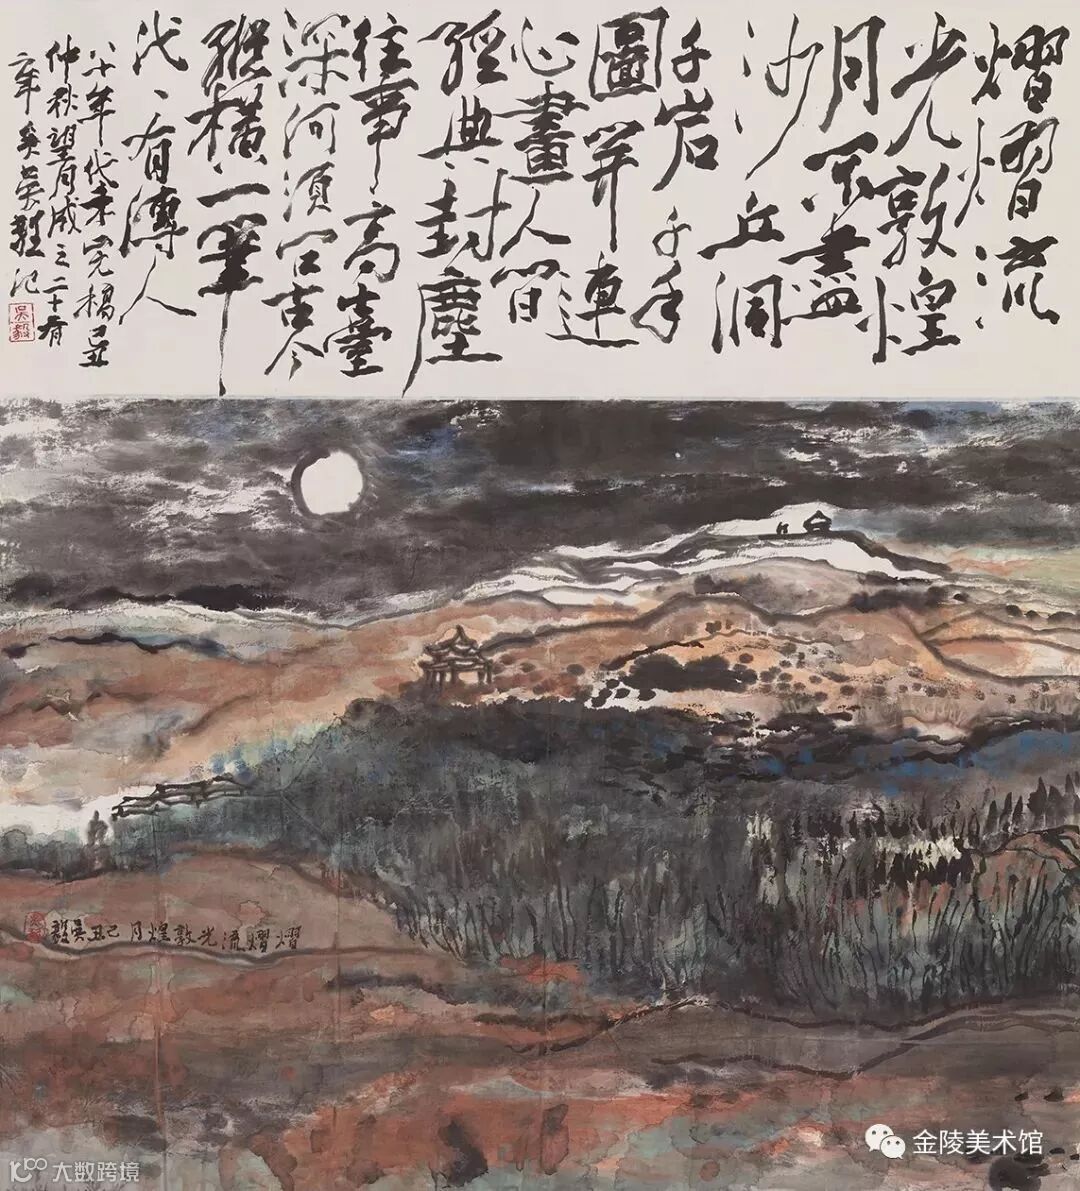 熠熠流
光敦煌
月不盡
沙丘洞
千岩千年
圖連
心畫人間
經典封塵
往事高臺
深河須問古今
縱橫一筆
代、有傳人
八十年代末完稿己丑
仲秋望月成之二十有
年矣吳毅記
吳毅
熠熠流光敦煌月己丑吳毅
金陵美术馆
大数跨境